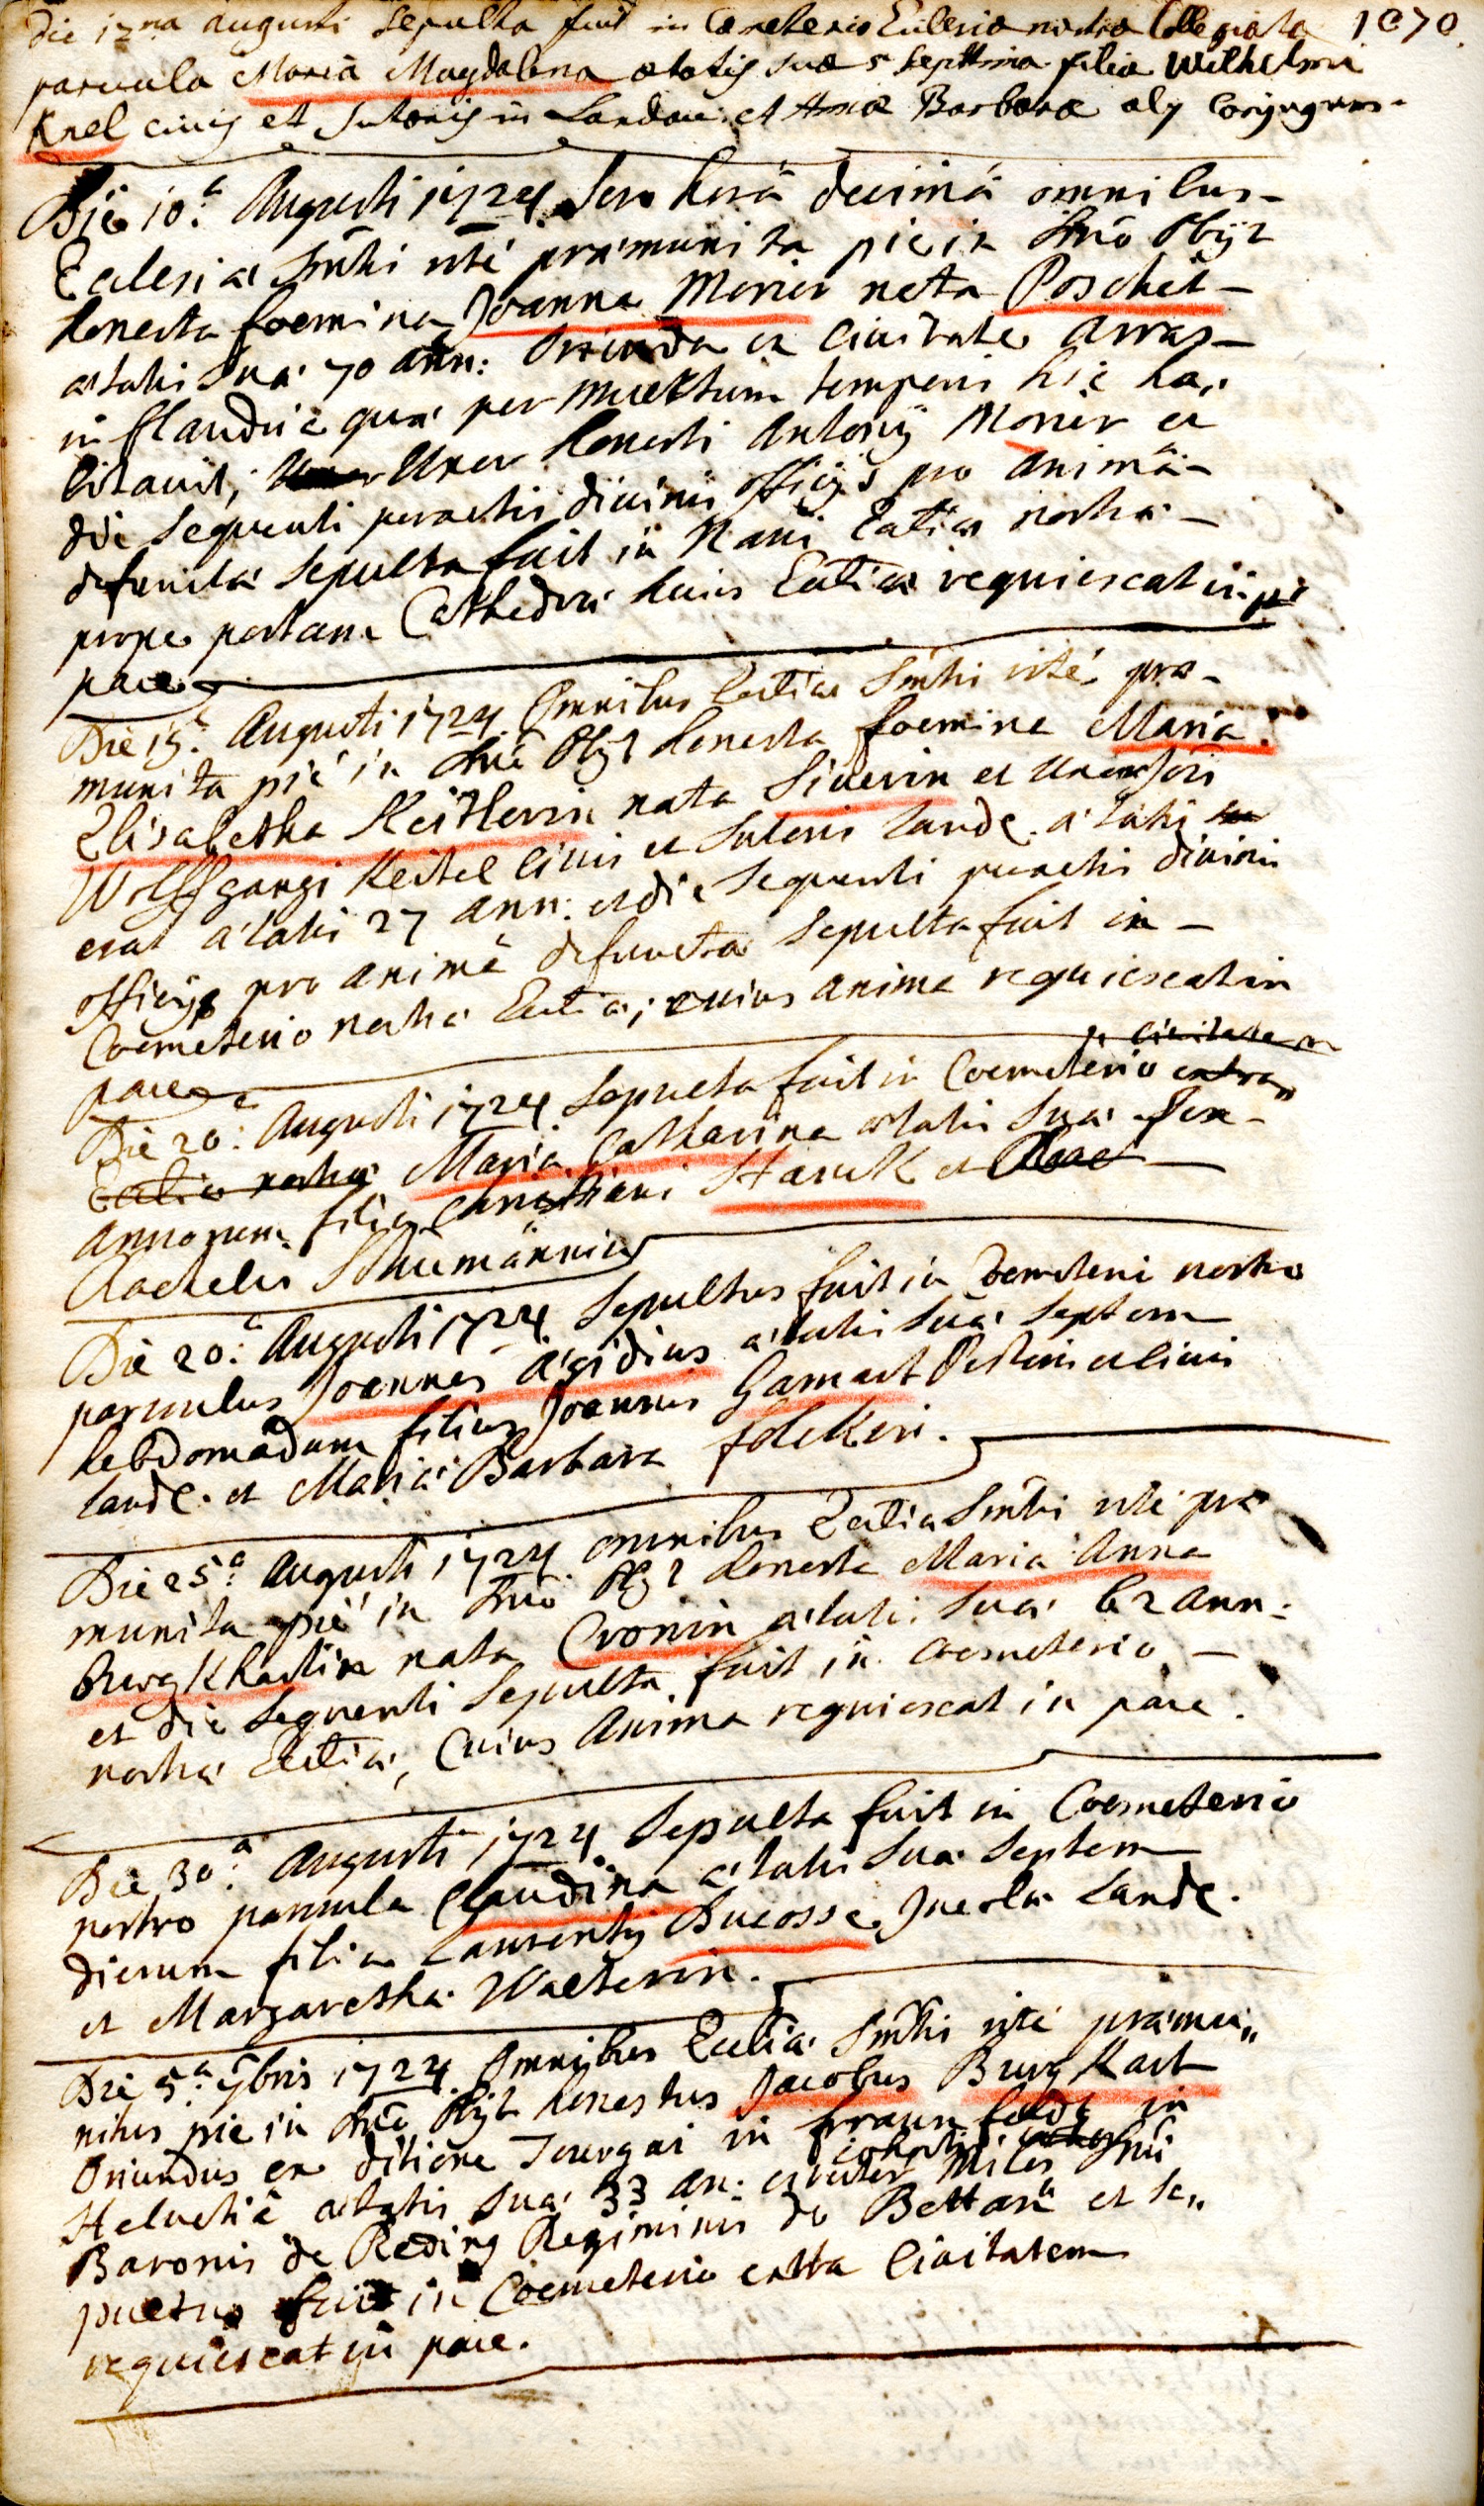 Die 12ma augusti Sepulta fuit in Cœmeterio Ecclesiæ nostræ Collegiatæ 1070.
parvula Maria Magdalena ætatis suæ 5 Septim̄ filia Wilhelmi
Knel civis et Sutoris in Landau et Annæ Barbaræ conjugum.
Die 10.a Augusti 1724 Sero horâ decimâ omnibus
Eclesiæ Smtis rité præmunita pie in Dnō Obijt
honesta foemina Joanna Monier nata Poschet
ætatis suæ 70 ann: Oriunda ex Civitate Arras
in flandriâ quæ per multum temporis hic ha,,
bitavit; Uxor Honesti Antonij Monier et
die Sequenti peractis divinis officijs pro animâ
defunctæ Sepulta fuit in Navi Ecclīæ nostræ
prope portam Cathedræ huius Ecclīæ requiescat in
pace
Die 15.a Augusti 1724 Omnibus Ecclīæ Smtis rité præ-
munita pié in Dnō Obijt honesta foemina Maria
Elisabetha Keitlerin nata Siverin et Uxor
Wolffgangi Keitel Civis et Sutoris Landæ.
erat ætatis 27 ann: et die Sequenti peractis divinis
officijs pro animâ defunctæ Sepulta fuit in
Coemeterio nostræ Ecclīæ; cuius anima requiescat in
pace
civitatem
Die 20.a Augusti 1724 Sepulta fuit in Coemeterio extra
Ecclīæ nostræ Maria Catharina ætatis suæ sex
annorum filia Christiani Starck et
Rachelis Schumännin
Die 20.a Augusti 1724 Sepultus fuit in Coemeterio nostro
parvulus Joannes Ægidius ætatis suæ Septem
hebdomadum filius Joannis Gamart et Civis
Landæ. et Mariæ Barbara
Die 25.a Augusti 1724 omnibus Ecclīæ Smtis rité præ
munita pié in Dnō Obijt honesta Maria Anna
Burgkhartin nata Cronin ætatis suæ 62 ann:
et die Sequenti Sepulta fuit in Coemeterio
nostræ Ecclīæ, Cuius Anima requiescat in pace.
Die 30.a Augusti 1724 Sepulta fuit in Coemeterio
nostro parvula Claudina ætatis suæ Septem
dierum filia Laurentij Ducosse Incolæ Landæ.
et Margaretha Walterin.
Die 5.a 7bris 1724 Omnibus Ecclīæ Smtis rité præmu,,
nitus pie in Dnō Obijt honestus Jacobus Burgkart
Oriundus ex ditione Tourgai in fraunfeldt in
cohortis
Helvetiâ ætatis suæ 33 an: Miles Dni
Baronis de Reding Regiminis de Bettan et Se,,
pultus fuit in Coemeterio extra Civitatem
requiescat in pace.